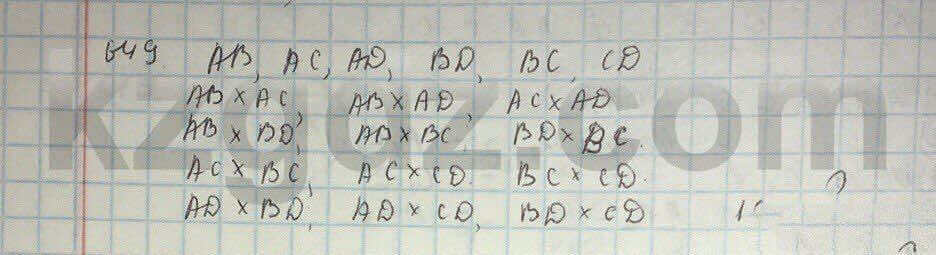 649. AB, AC, AD, BD, BC, CD
AB × AC, AB × AD, AC × AD
AB × BD, AB × BC. BD × BC.
AC × BC, AC × CD. BC × CD.
AD × BD, AD × CD, BD × CD
kzgdz.com